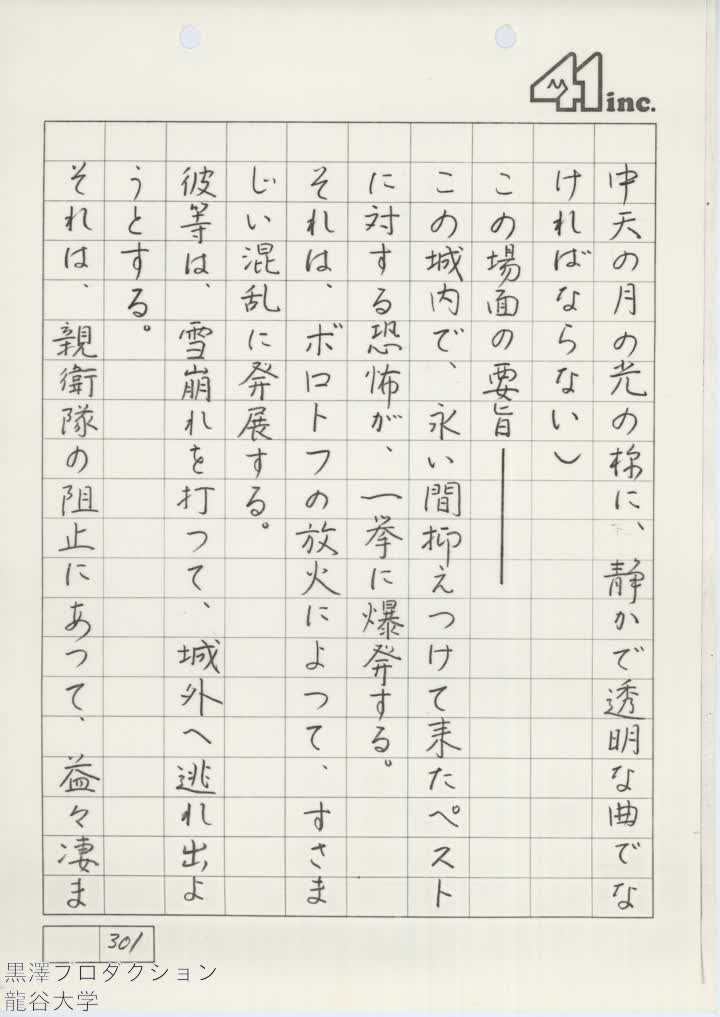 41 inc.
中天の月の光の様に、静かで透明な曲でな
ければならない)
この場面の要旨――――
この城内で、永い間抑えつけて来たペスト
に対する恐怖が、一挙に爆発する。
それは、ボロトフの放火によつて、すさま
じい混乱に発展する。
彼等は、雪崩れを打つて、城外へ逃れ出よ
うとする。
それは、親衛隊の阻止にあつて、益々凄ま
301
黒澤プロダクション
龍谷大学